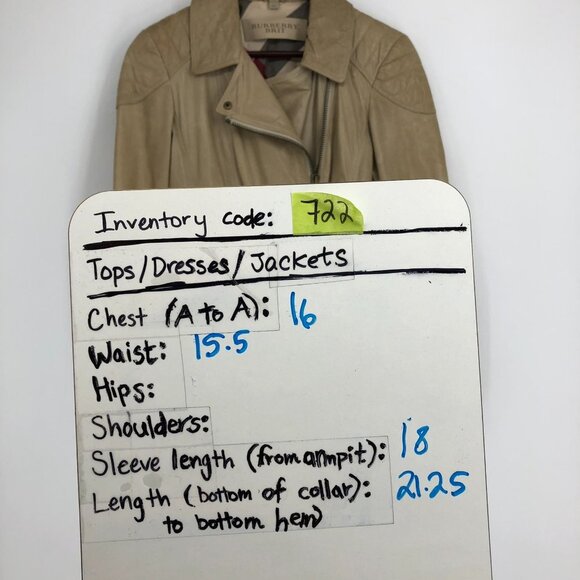 BURBERRY
BRIT
Inventory code: 722
Tops/Dresses/Jackets
Chest (A to A): 16
Waist: 15.5
Hips:
Shoulders:
Sleeve length (from armpit): 18
Length (bottom of collar): 21.25
to bottom hem)